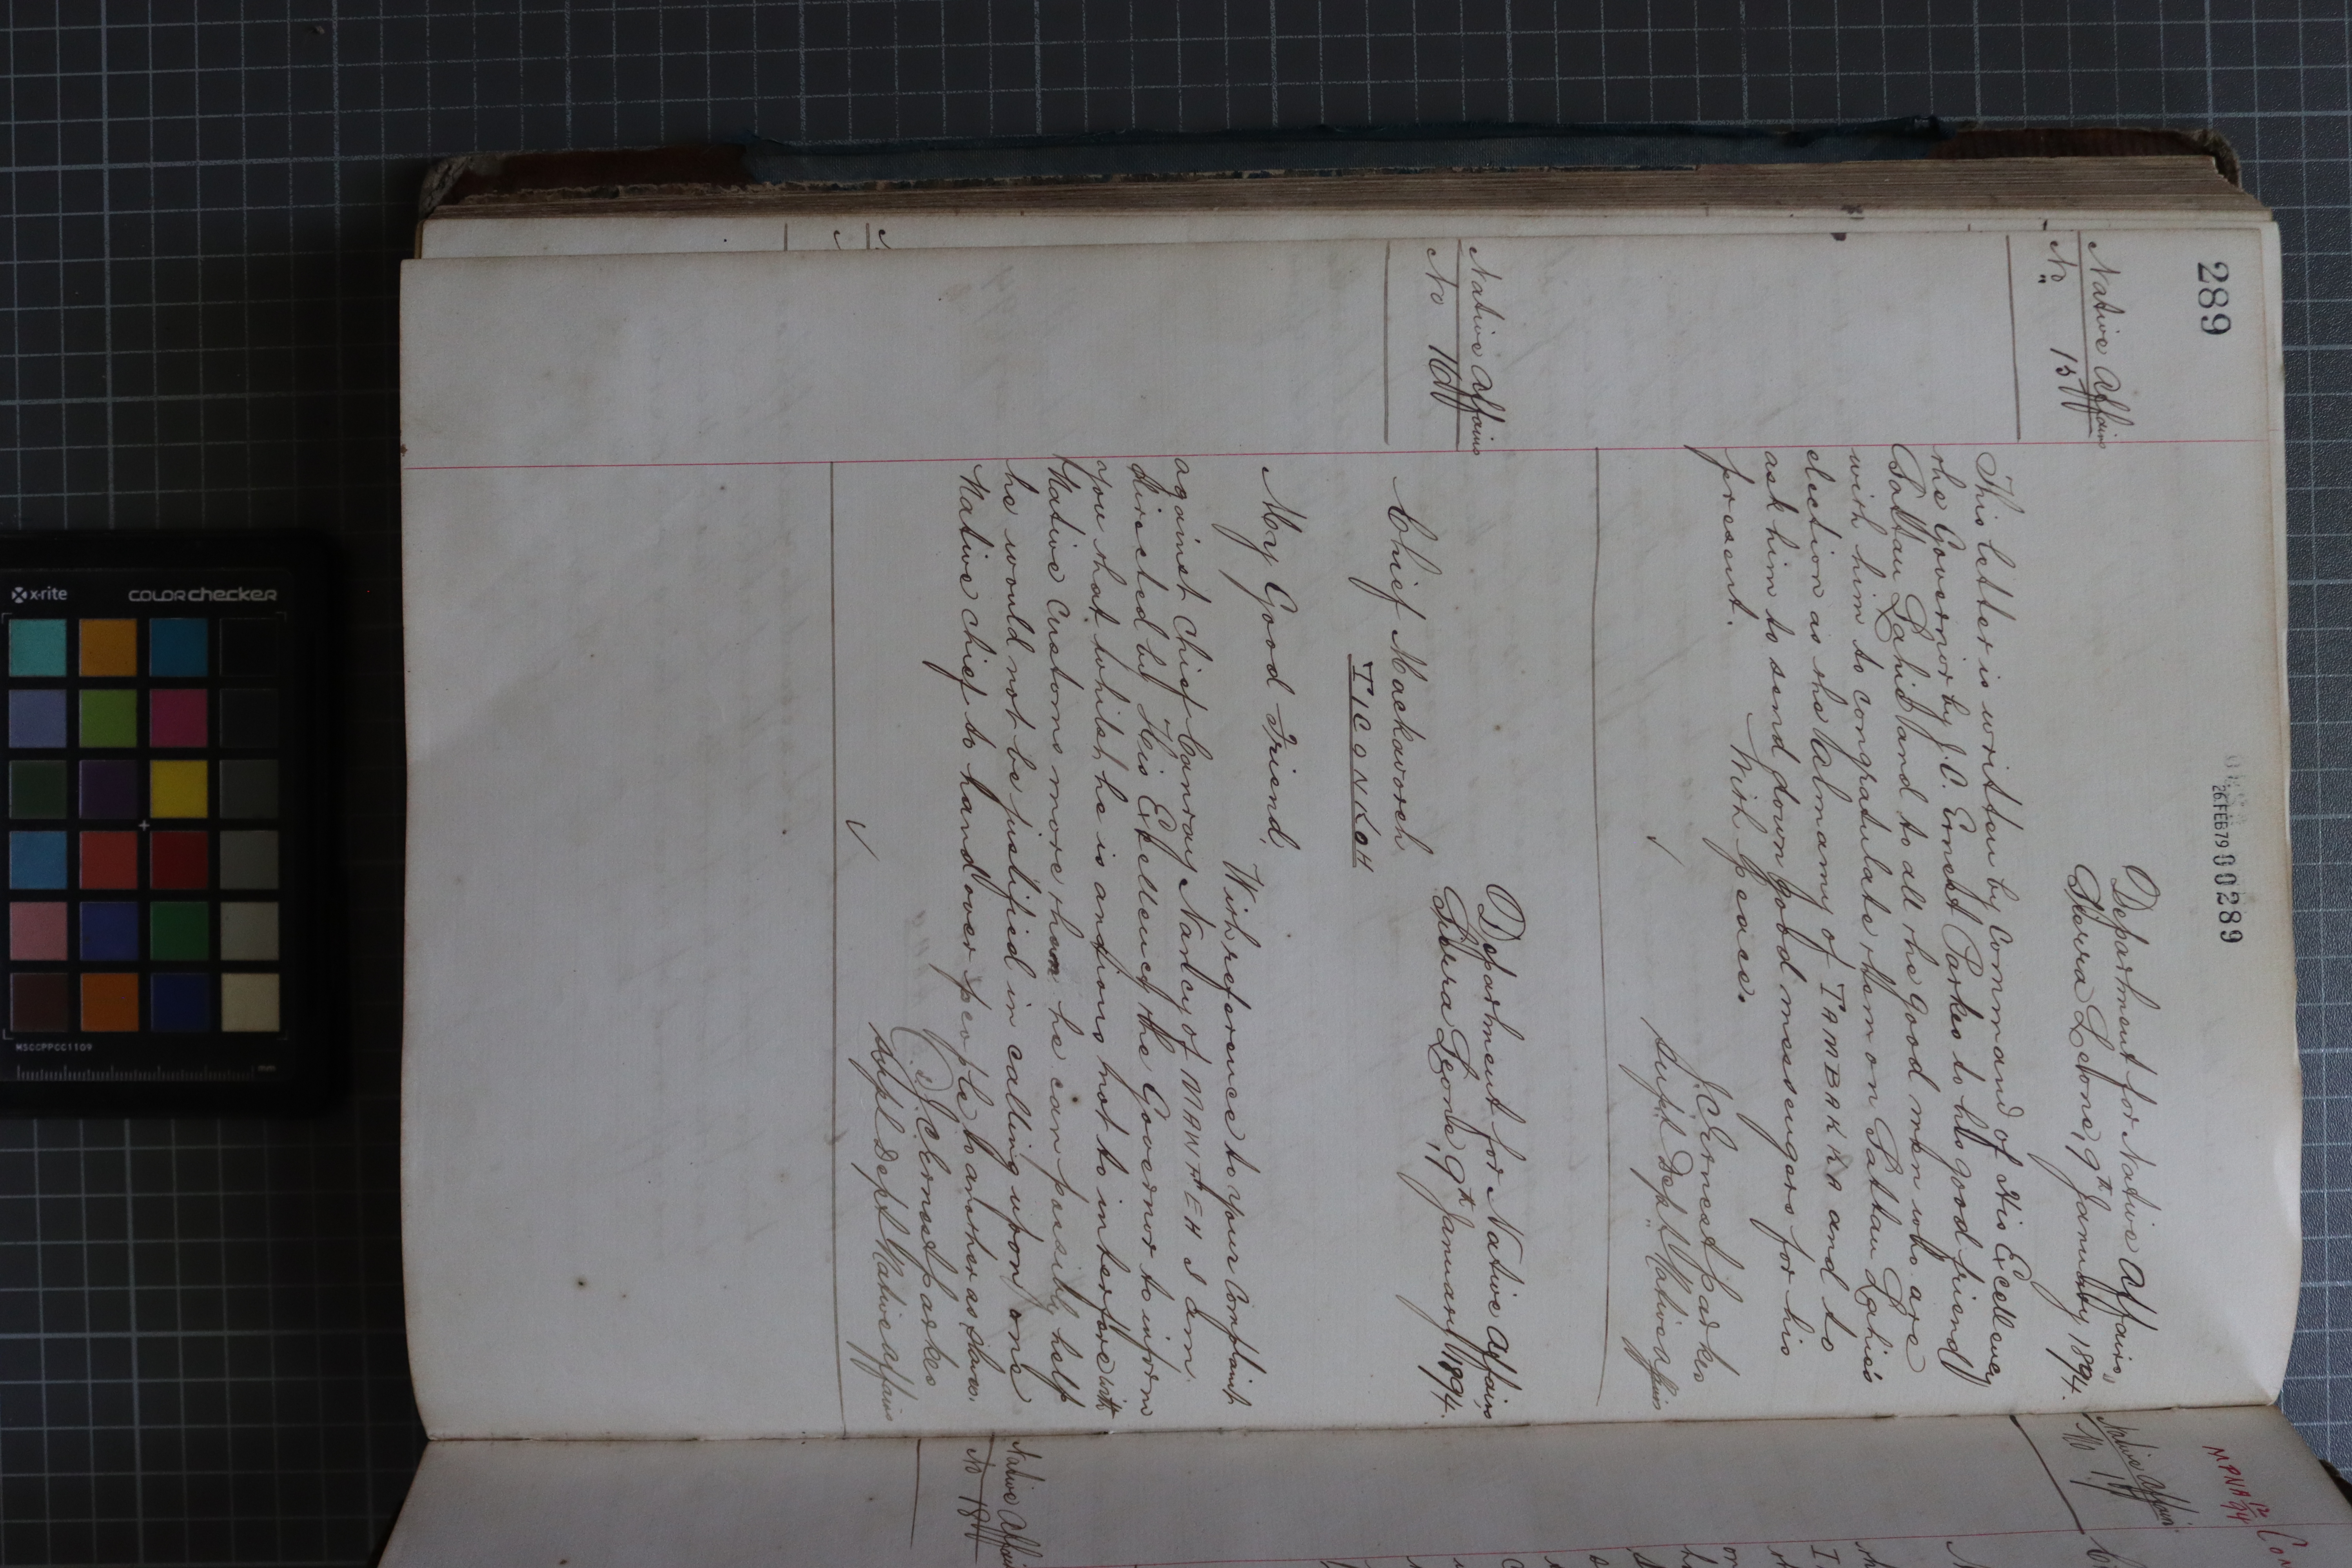 289
26 FEB 79 00289
Native Affairs
No 15
Department for Native Affairs,
Sierra Leone, 9th January 1894.
This letter is written by Command of His Excellency
the Governor by J.C. Ernest Parkes to his good friend
Pattau Lahai and to all the good men who are
with him to congratulate them on Pattau Lahai's
election as the Almamy of TAMBAKKA and to
ask him to send down good messengers for his
present.
With peace.
J.C. Ernest Parkes
Supt. Dept. Native Affairs
Native Affairs
No 16
Department for Native Affairs
Sierra Leone, 9th January 1894.
Chief Mackavoreh
TICONKOH
My Good Friend,
With reference to your Complaint
against Chief Canray Nancy of I am
directed by His Excellency the Governor to inform
you that whilst he is anxious not to interfere with
Native Customs more than he can possibly help
he would not be justified in calling upon one
Native Chief to hand over people to another as slaves.
J.C. Ernest Parkes
Supt Dept Native Affairs
Native Affairs
No 17
Native Affairs
No 18
x-rite
COLORchecker
MSCCPPCC1109
mm